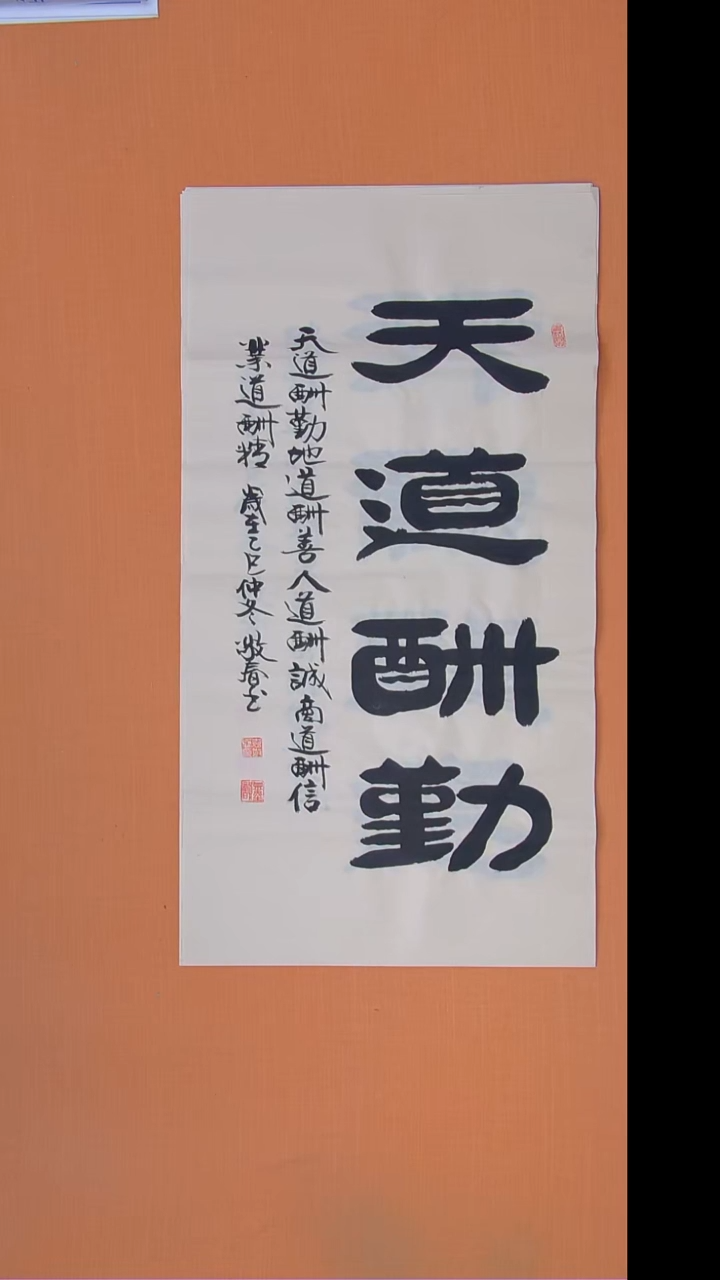 天道酬勤
天道酬勤地道酬善人道酬誠商道酬信
業道酬精 歲在乙巳仲冬 敬春书